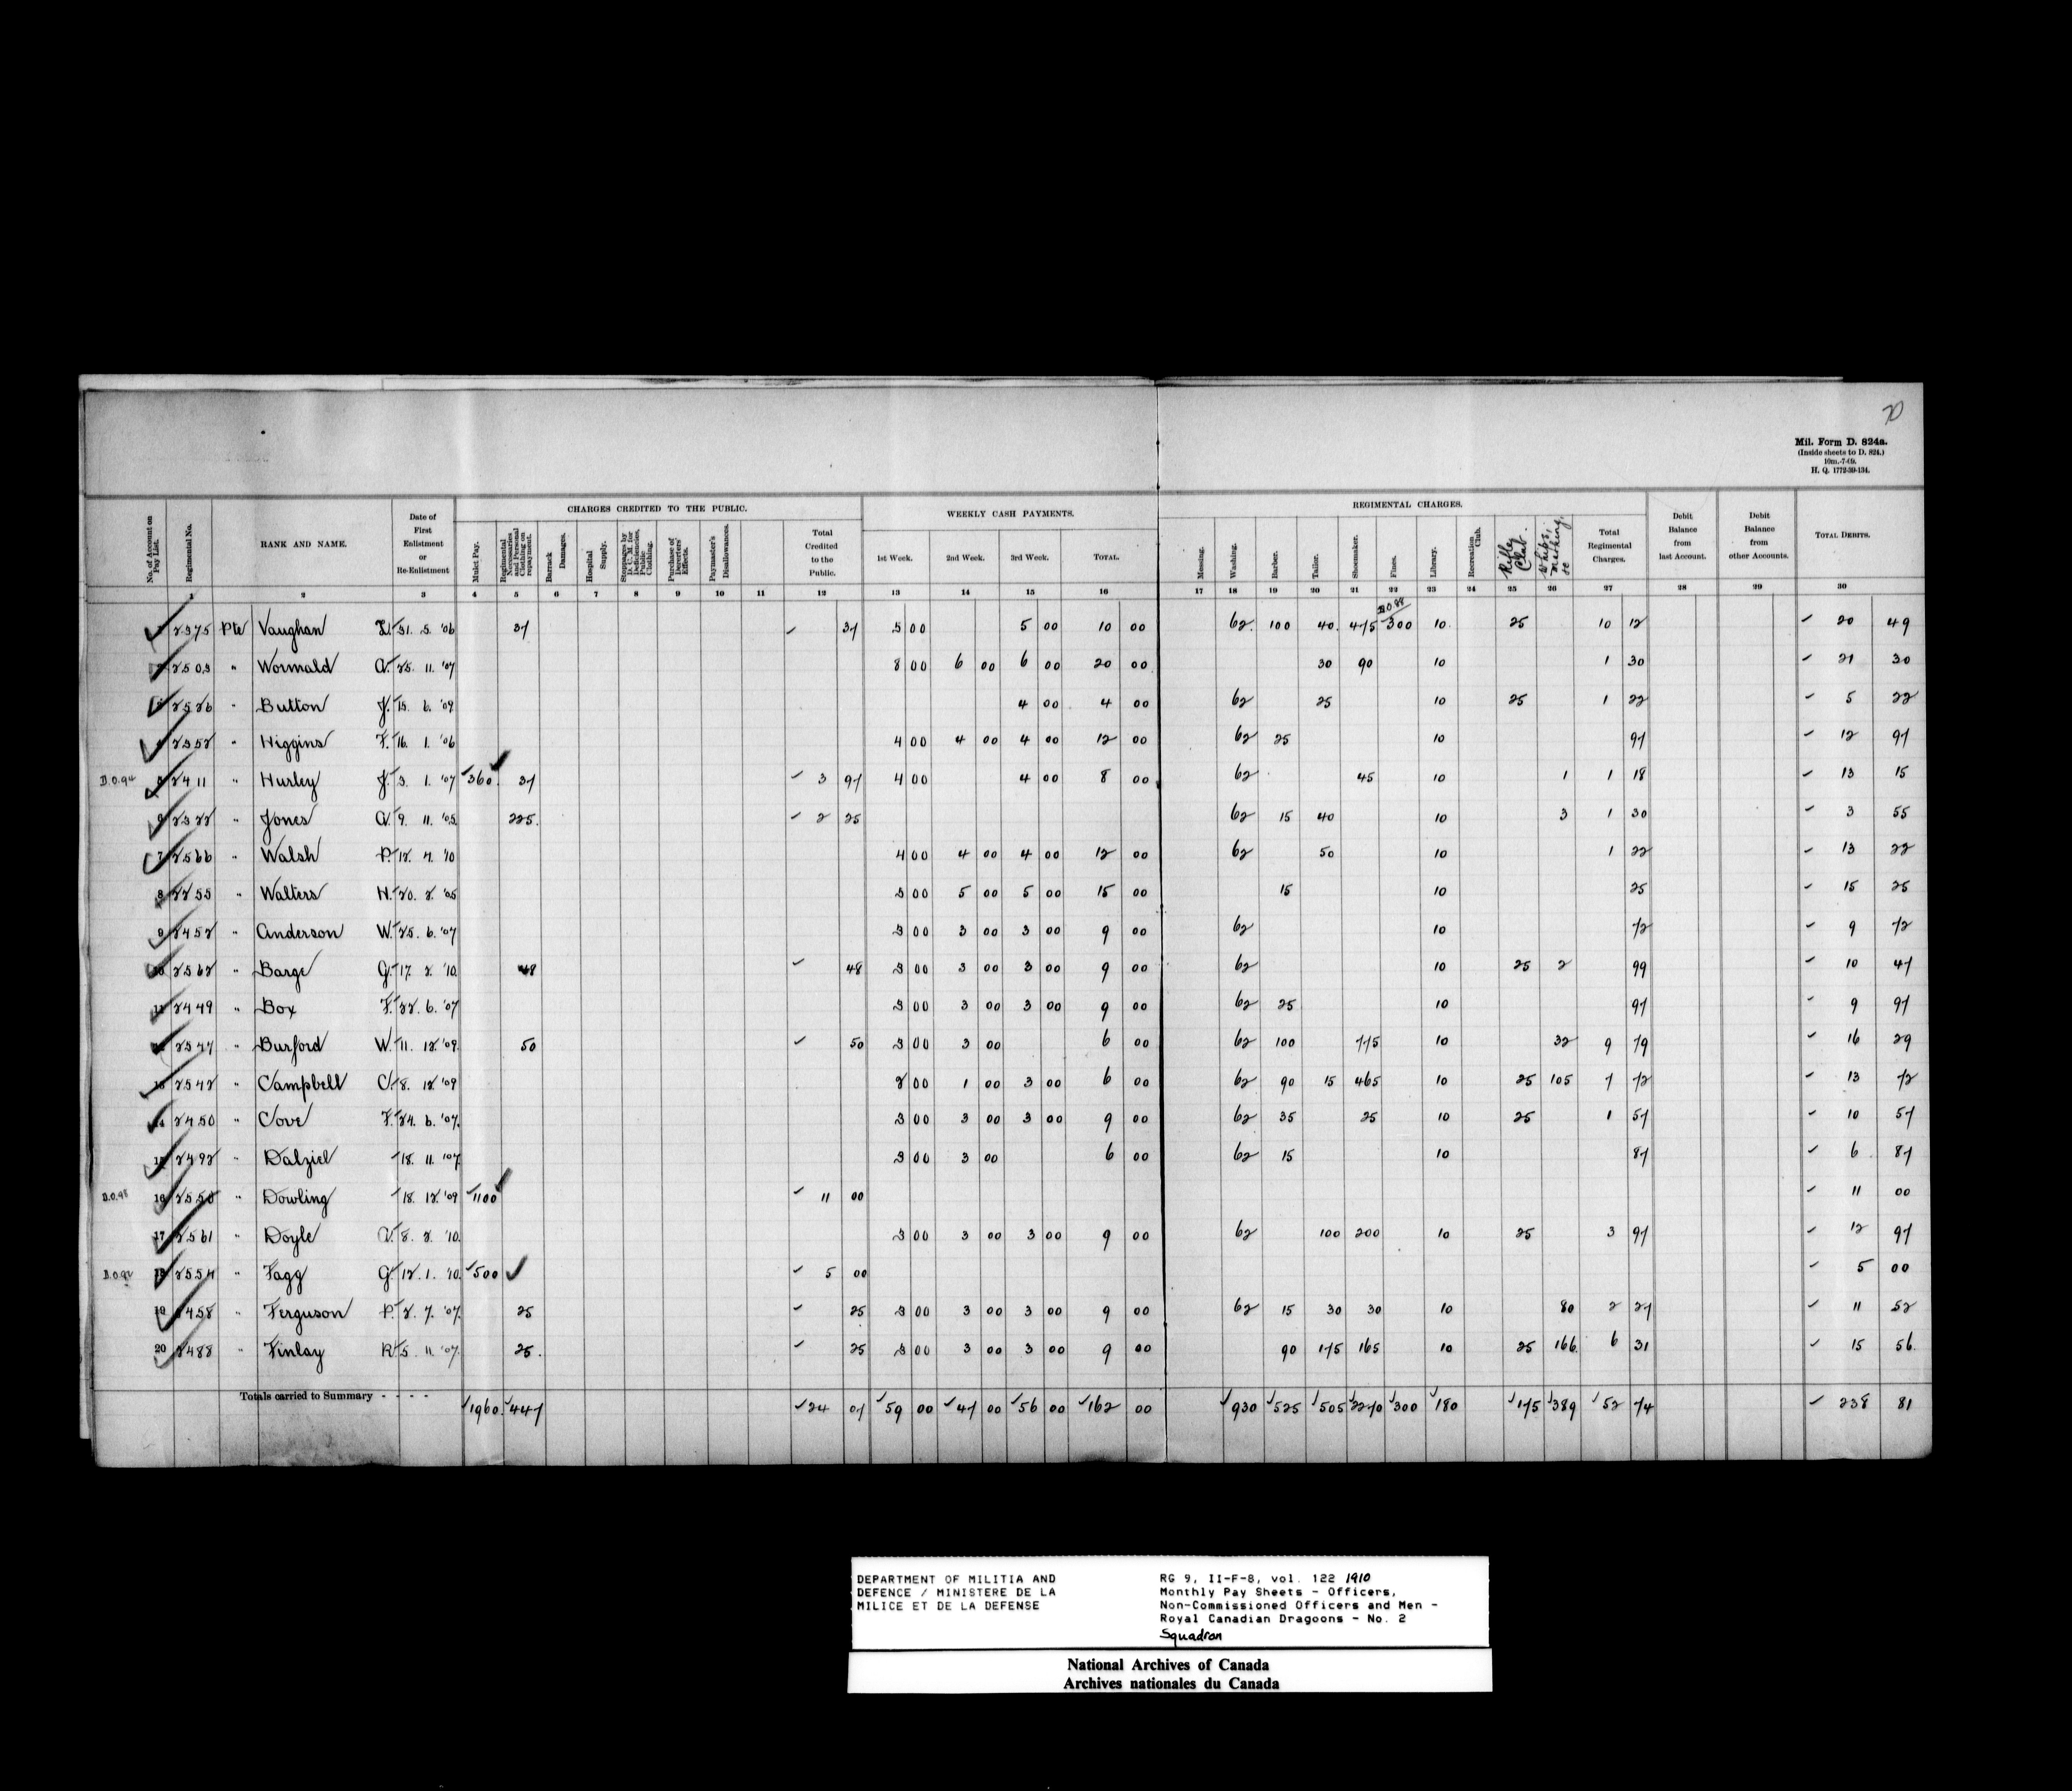 70
Mil. Form D. 824a.
(Inside sheets to D. 824.)
10m.-7-09.
H. Q. 1772-39-134.
CHARGES CREDITED TO THE PUBLIC. WEEKLY CASH PAYMENTS. REGIMENTAL CHARGES.
No. of Account on Pay List. Regimental No. RANK AND NAME. Date of First Enlistment or Re-Enlistment Mulct Pay. Regimental Necessaries and Personal Clothing on repayment. Barrack Damages. Hospital Supply. Stoppages by D. C. M. for Deficiencies, Public Clothing. Purchase of Deserters' Effects. Paymaster's Disallowances. Total Credited to the Public. 1st Week. 2nd Week. 3rd Week. TOTAL. Messing. Washing. Barber. Tailor. Shoemaker. Fines. Library. Recreation Club. Rifle Club. Whips, marking, &c Total Regimental Charges. Debit Balance from last Account. Debit Balance from other Accounts. TOTAL DEBITS.
1 2 3 4 5 6 7 8 9 10 11 12 13 14 15 16 17 18 19 20 21 22 23 24 25 26 27 28 29 30
1 2375 Pte Vaughan L. 31. 5. '06 37 37 5 00 5 00 10 00 62. 100 40. 475 D.O.88 300 10. 25 10 12 20 49
2 2503 " Wormald A. 25. 11. '07 8 00 6 00 6 00 20 00 30 90 10 1 30 21 30
3 2526 " Button J. 15. 6. '09 4 00 4 00 62 25 10 25 1 22 5 22
4 2352 " Higgins F. 16. 1. '06 4 00 4 00 4 00 12 00 62 25 10 97 12 97
D.O.94 5 2411 " Hurley J. 3. 1. '07 360. 37 3 97 4 00 4 00 8 00 62 45 10 1 1 18 13 15
6 2322 " Jones A. 9. 11. '05. 225. 2 25 62 15 40 10 3 1 30 3 55
7 2566 " Walsh P. 12. 4. '10 4 00 4 00 4 00 12 00 62 50 10 1 22 13 22
8 2255 " Walters H. 20. 2. '05 5 00 5 00 5 00 15 00 15 10 25 15 25
9 2452 " Anderson W. 25. 6. '07 3 00 3 00 3 00 9 00 62 10 72 9 72
10 2562 " Barge G. 17. 2. '10. 48 48 3 00 3 00 3 00 9 00 62 10 25 2 99 10 47
11 2449 " Box F. 22. 6. '07 3 00 3 00 3 00 9 00 62 25 10 97 9 97
12 2547 " Burford W. 11. 12. '09. 50 50 3 00 3 00 6 00 62 100 775 10 32 9 79 16 29
13 2542 " Campbell C. 8. 12 '09 2 00 1 00 3 00 6 00 62 90 15 465 10 25 105 7 72 13 72
14 2450 " Cove F. 24. 6. '07. 3 00 3 00 3 00 9 00 62 35 25 10 25 1 57 10 57
15 2492 " Dalziel 18. 11. '07 3 00 3 00 6 00 62 15 10 87 6 87
D.O.98 16 2550 " Dowling 18. 12 '09 1100 11 00 11 00
17 2561 " Doyle A. 8. 2. '10. 3 00 3 00 3 00 9 00 62 100 200 10 25 3 97 12 97
D.O.92 18 2554 " Fagg G. 12. 1. '10. 500 5 00 5 00
19 2458 " Ferguson P. 2. 7. '07. 25 25 3 00 3 00 3 00 9 00 62 15 30 30 10 80 2 27 11 52
20 2488 " Finlay R. 5. 11. '07. 25. 25 3 00 3 00 3 00 9 00 90 175 165 10 25 166. 6 31 15 56.
Totals carried to Summary - - - - 1960. 447 24 07 59 00 47 00 56 00 162 00 930 525 505 2270 300 180 175 389 52 74 238 81
DEPARTMENT OF MILITIA AND
DEFENCE / MINISTERE DE LA
MILICE ET DE LA DEFENSE
RG 9, II-F-8, vol. 122 1910
Monthly Pay Sheets - Officers,
Non-Commissioned Officers and Men -
Royal Canadian Dragoons - No. 2
Squadron
National Archives of Canada
Archives nationales du Canada